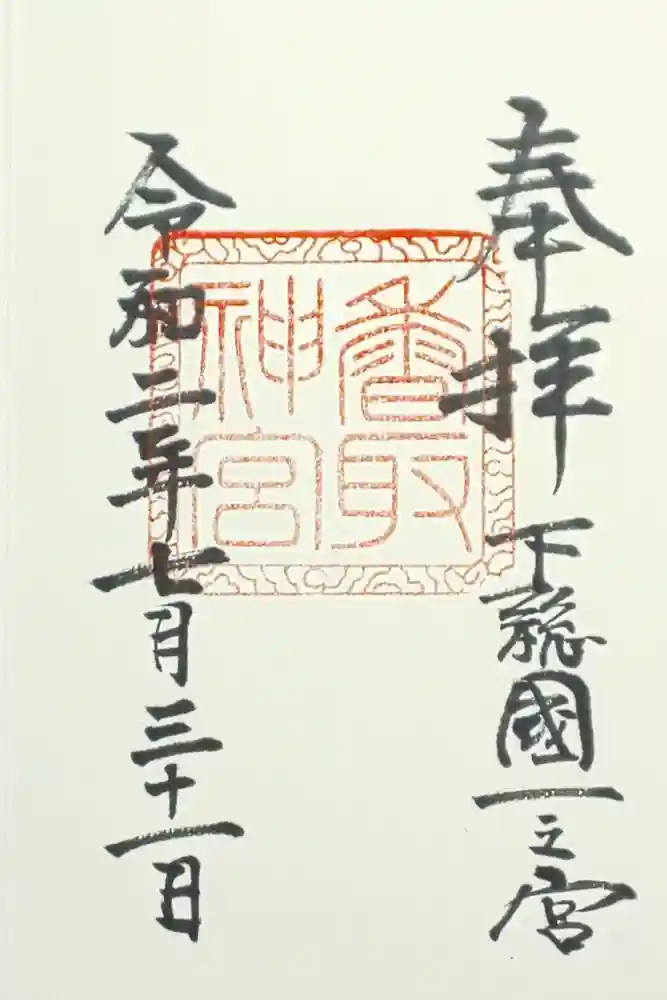 奉拝 下総國一之宮
香取
神宮
令和二年七月三十一日